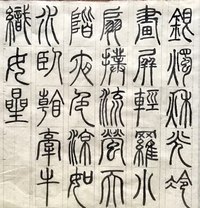 銀燭秋光冷
畫屏輕羅小
扇撲流螢天
階夜色涼如
水臥看牽牛
織女星